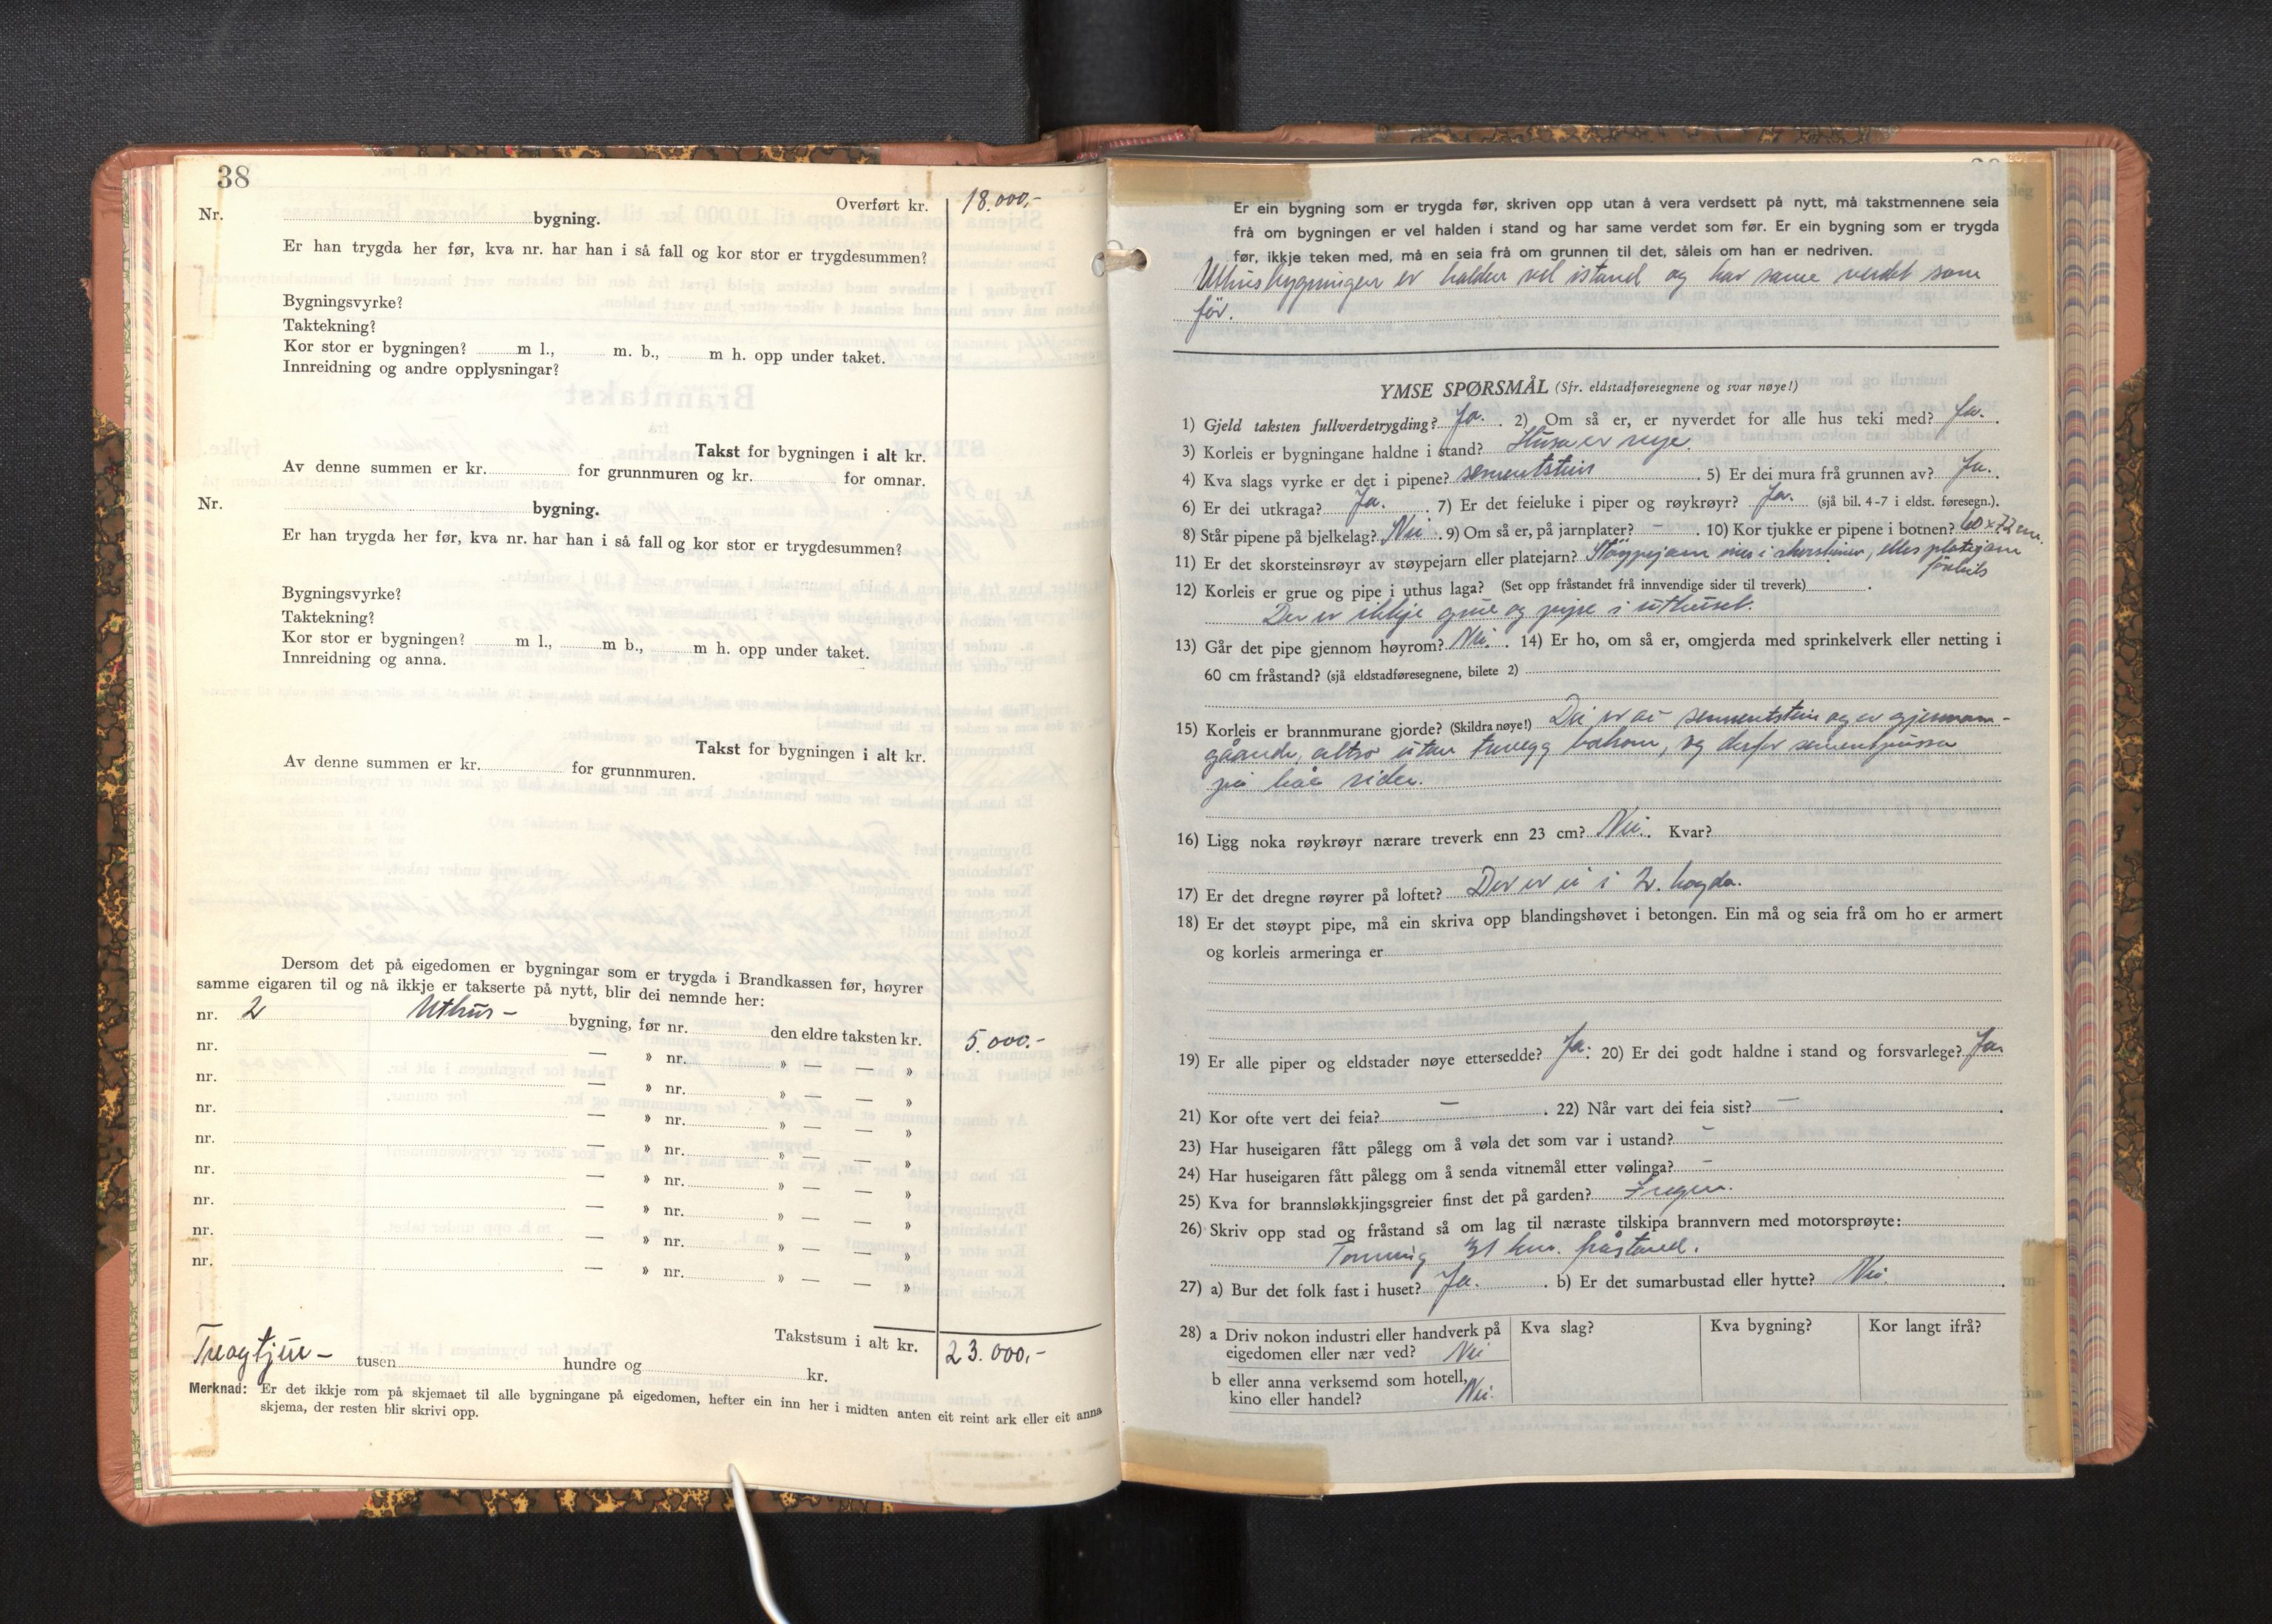 38
Overført kr. 18.000,-
Nr. bygning.
Er han trygda her før, kva nr. har han i så fall og kor stor er trygdesummen?
Bygningsvyrke?
Taktekning?
Kor stor er bygningen? m l., m. b., m h. opp under taket.
Innreidning og andre opplysningar?
Takst for bygningen i alt kr.
Av denne summen er kr. for grunnmuren og kr. for omnar.
Nr. bygning.
Er han trygda her før, kva nr. har han i så fall og kor stor er trygdesummen?
Bygningsvyrke?
Taktekning?
Kor stor er bygningen? m l., m b., m h. opp under taket.
Innreidning og anna.
Takst for bygningen i alt kr.
Av denne summen er kr. for grunnmuren.
Dersom det på eigedomen er bygningar som er trygda i Brandkassen før, høyrer
samme eigaren til og nå ikkje er takserte på nytt, blir dei nemnde her:
nr. 2 Uthus - bygning, før nr. den eldre taksten kr. 5.000.-
nr. — » nr. » — — »
nr. — » nr. » — — »
nr. — » nr. » — — »
nr. — » nr. » — — »
nr. — » nr. » — — »
nr. — » nr. » — — »
nr. — » nr. » — — »
nr. — » nr. » — — »
Takstsum i alt kr. 23.000,-
Treogtjue - tusen hundre og kr.
Merknad: Er det ikkje rom på skjemaet til alle bygningane på eigedomen, hefter ein inn her i midten anten eit reint ark eller eit anna
skjema, der resten blir skrivi opp.
Er ein bygning som er trygda før, skriven opp utan å vera verdsett på nytt, må takstmennene seia
frå om bygningen er vel halden i stand og har same verdet som før. Er ein bygning som er trygda
før, ikkje teken med, må en seia frå om grunnen til det, såleis om han er nedriven.
Uthusbygningen er halden vel istand og har same verdet som
før.
YMSE SPØRSMÅL (Sfr. eldstadføresegnene og svar nøye!)
1) Gjeld taksten fullverdetrygding? Ja. 2) Om så er, er nyverdet for alle hus teki med? Ja.
3) Korleis er bygningane haldne i stand? Husa er nye.
4) Kva slags vyrke er det i pipene? sementstein 5) Er dei mura frå grunnen av? Ja.
6) Er dei utkraga? Ja. 7) Er det feieluke i piper og røykrøyr? Ja. (sjå bil. 4-7 i eldst. føresegn.).
8) Står pipene på bjelkelag? Nei. 9) Om så er, på jarnplater? — 10) Kor tjukke er pipene i botnen? 60 x 72 cm.
11) Er det skorsteinsrøyr av støypejarn eller platejarn? Støypejarn inne i skorsteinen, elles platejarn
12) Korleis er grue og pipe i uthus laga? (Set opp fråstandet frå innvendige sider til treverk)
Der er ikkje grue og pipe i uthuset.
13) Går det pipe gjennom høyrom? Nei. 14) Er ho, om så er, omgjerda med sprinkelverk eller netting i
60 cm fråstand? (sjå eldstadføresegnene, bilete 2)
15) Korleis er brannmurane gjorde? (Skildra nøye!) Dei er av sementstein og er gjennom-
gåande, altso utan trevegg bakom, og derfor sementpussa
på båe sider.
16) Ligg noka røykrøyr nærare treverk enn 23 cm? Nei. Kvar?
17) Er det dregne røyrer på loftet? Der er ei i 2. høgda.
18) Er det støypt pipe, må ein skriva opp blandingshøvet i betongen. Ein må og seia frå om ho er armert
og korleis armeringa er
19) Er alle piper og eldstader nøye ettersedde? Ja. 20) Er dei godt haldne i stand og forsvarlege? Ja.
21) Kor ofte vert dei feia? — 22) Når vart dei feia sist? —
23) Har huseigaren fått pålegg om å vøla det som var i ustand? —
24) Har huseigaren fått pålegg om å senda vitnemål etter vølinga? —
25) Kva for brannsløkkjingsgreier finst det på garden? Ingen.
26) Skriv opp stad og fråstand så om lag til næraste tilskipa brannvern med motorsprøyte:
Tonning 31 km. fråstand.
27) a) Bur det folk fast i huset? Ja. b) Er det sumarbustad eller hytte? Nei.
28) a Driv nokon industri eller handverk på
eigedomen eller nær ved? Nei
Kva slag? Kva bygning? Kor langt ifrå?
b eller anna verksemd som hotell,
kino eller handel? Nei.